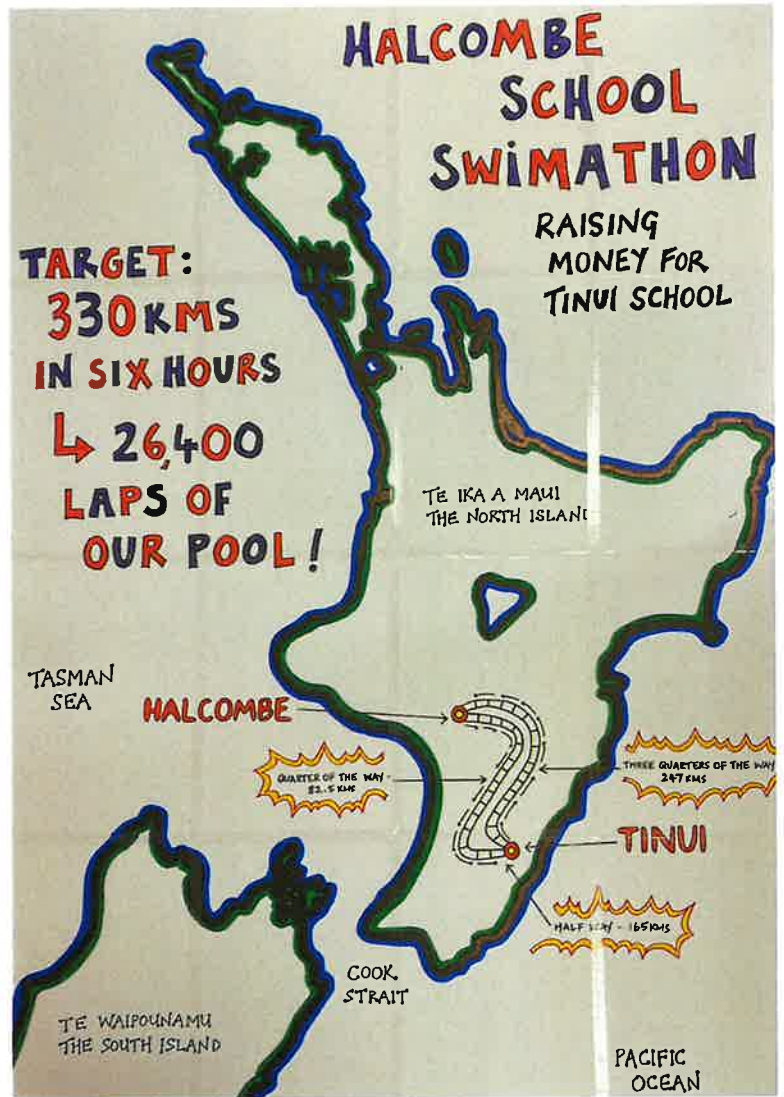 HALCOMBE
SCHOOL
SWiMATHON
RAISING
MONEY FOR
TINUI SCHOOL
TARGET:
330 KMS
IN SIX HOURS
↳ 26,400
LAPS OF
OUR POOL!
TE IKA A MAUI
THE NORTH ISLAND
TASMAN
SEA
HALCOMBE
QUARTER OF THE WAY -
82.5 KMS
THREE QUARTERS OF THE WAY
247 KMS
TINUI
HALF WAY - 165 KMS
COOK
STRAIT
TE WAIPOUNAMU
THE SOUTH ISLAND
PACIFIC
OCEAN